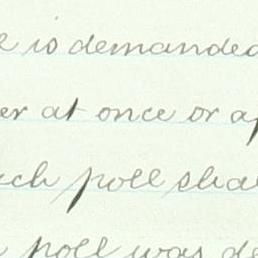 e is demanded
er at once or ap
uch poll shal
poll was de